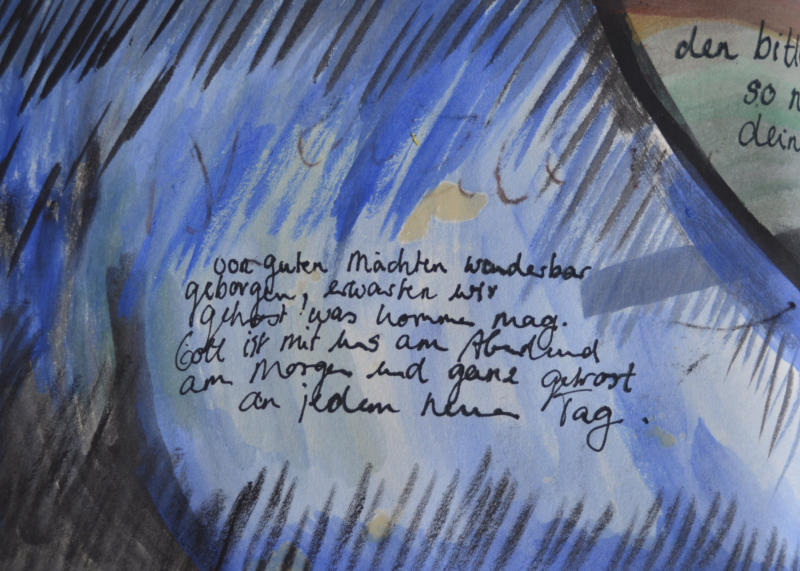 von guten Mächten wunderbar
geborgen, erwarten wir
getrost was komme mag.
Gott ist mit uns am Abend und
am Morgen und ganz getrost
an jedem neuen Tag.
den bitt
so
dein